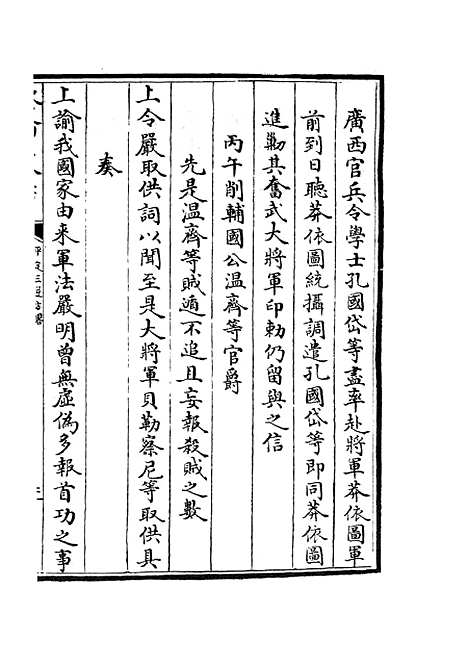 廣西官兵令學士孔國岱等盡率赴將軍莽依圖軍
前到日聽莽依圖統攝調遣孔國岱等即同莽依圖
進勦其奮武大將軍印勅仍留與之信
丙午削輔國公温齊等官爵
先是温齊等賊遁不追且妄報殺賊之數
上令嚴取供詞以聞至是大將軍貝勒察尼等取供具
奏
上諭我國家由来軍法嚴明曾無虛偽多報首功之事
平定三逆方略